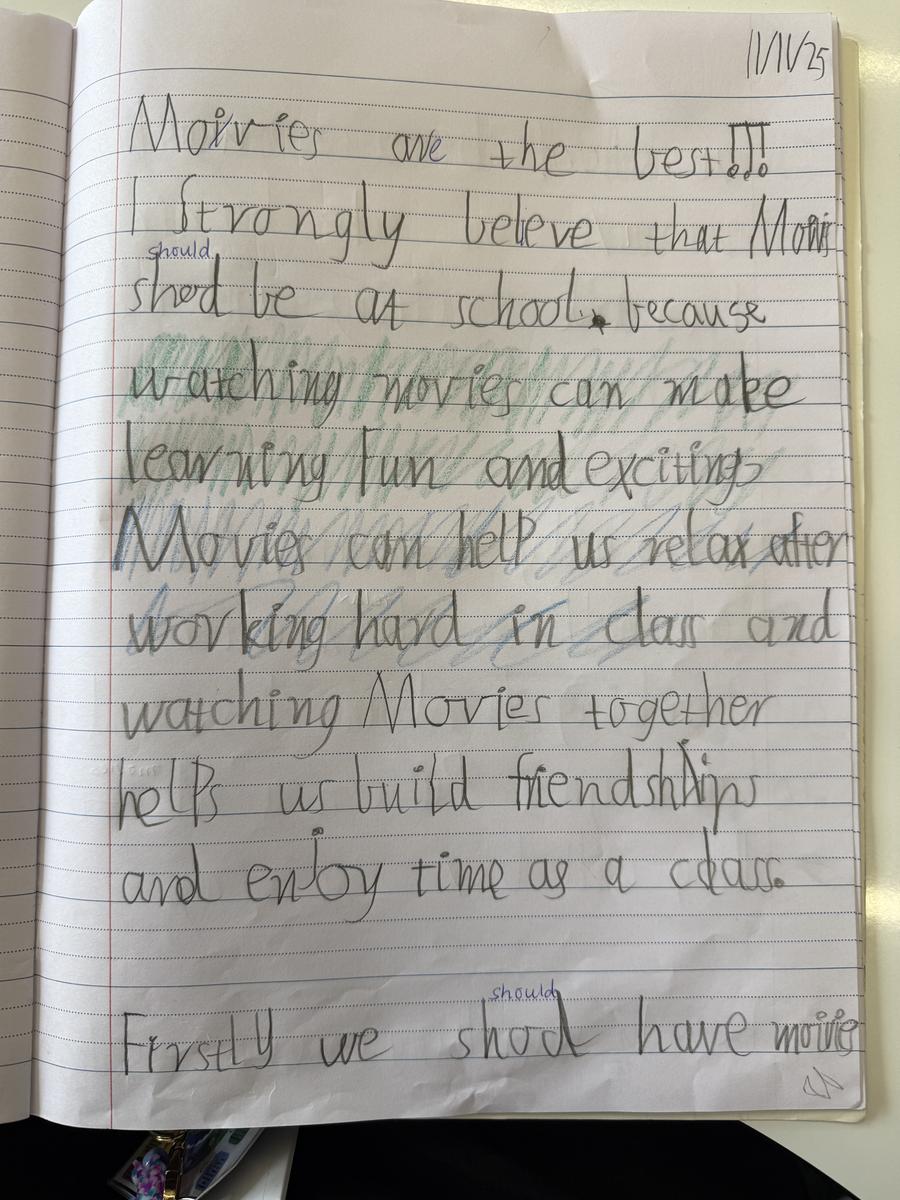 11/11/25
Moivies are the best!!!
I Strongly beleve that Movis
should
shod be at school. because
watching movies can make
learning fun and exciting
Movies can help us relax after
working hard in class and
watching Movies together
helps us build friendships
and enjoy time as a class.
should
Firstly we shod have moivies